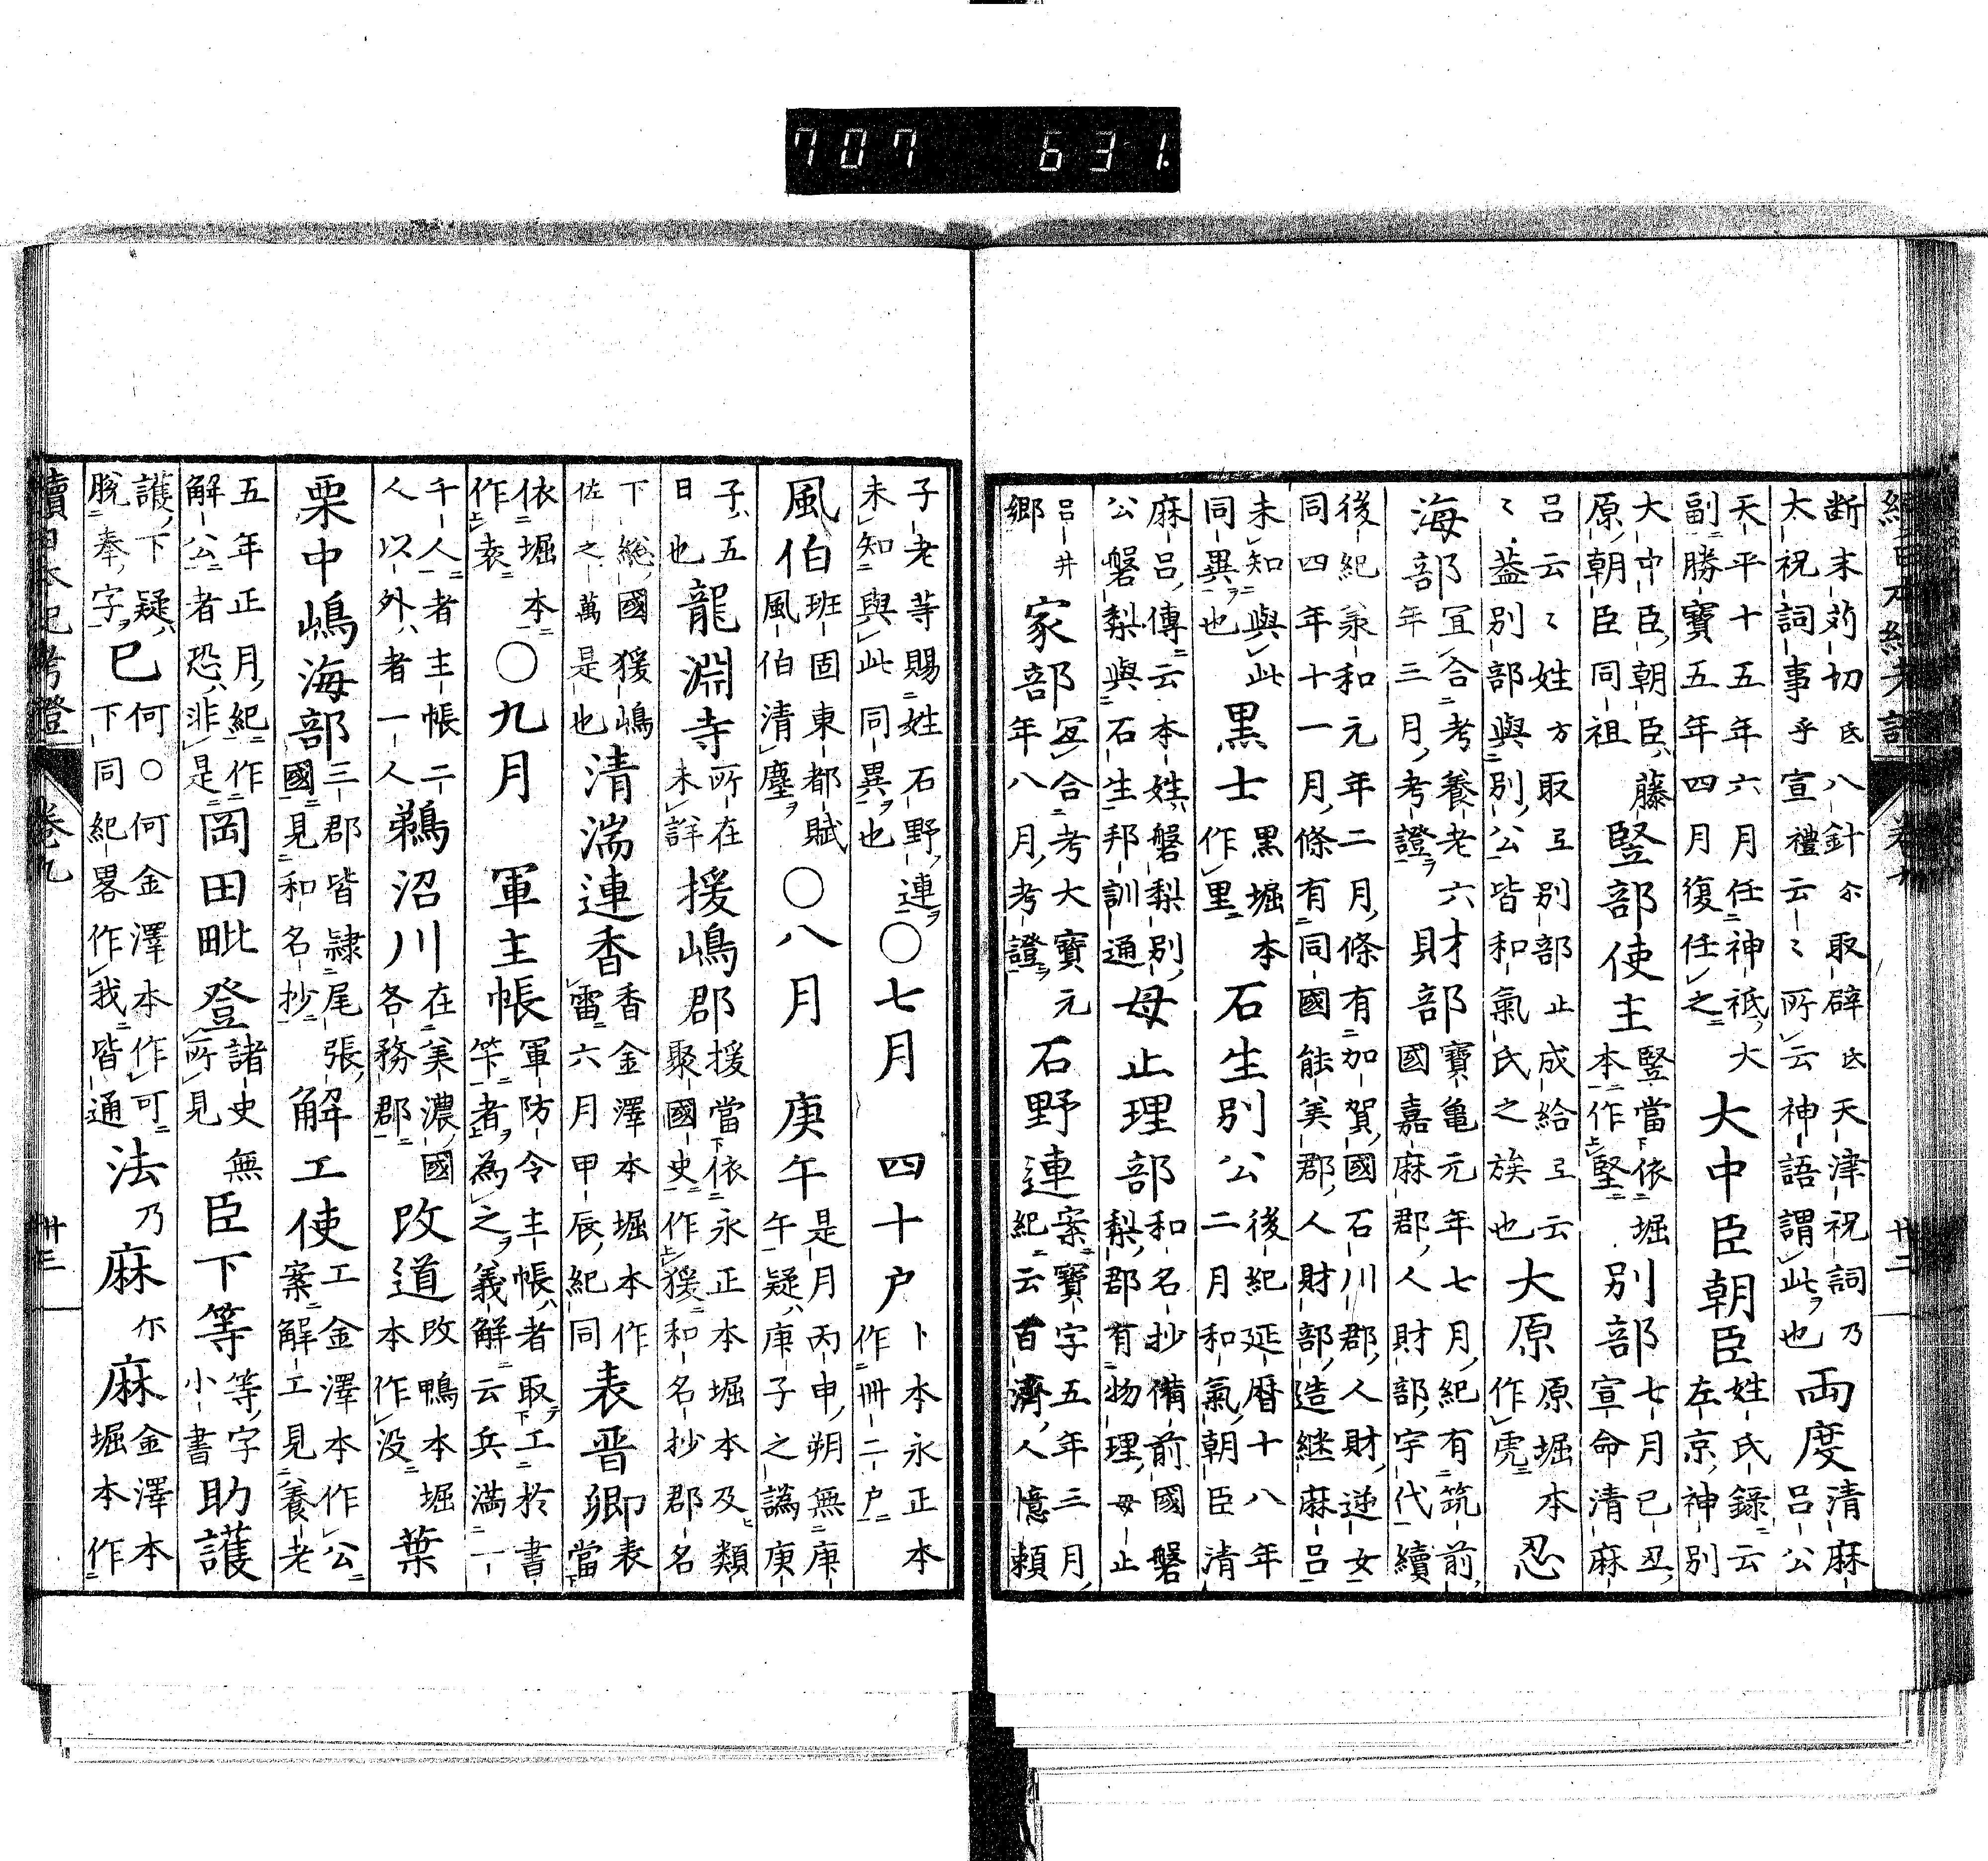 707 631.
續日本紀考證 卷九 卅二
断末苅切氐八針尒取辟氐天津祝詞乃
太祝詞事乎宣禮云々所云神語謂此也
兩度
清麻呂公
天平十五年六月任神祇大
副勝寶五年四月復任之
大中臣朝臣
姓氏錄云
左京神別
大中臣朝臣藤
原朝臣同祖
竪部使主
竪當依堀
本作堅
別部
七月己丑
宣命清麻
呂云云々姓方取弖別部止成給弖云
々蓋別部與別公皆和氣氏之族也
大原
原堀本
作虎
忍
海部
冝合考養老六
年三月考證
財部
寶亀元年七月紀有筑前
國嘉麻郡人財部字代續
後紀承和元年二月條有加賀國石川郡人財逆女
同四年十一月條有同國能美郡人財部造継麻呂
未知與此
同異也
黒士
黒堀本
作里
石生別公
後紀延暦十八年
二月和氣朝臣清
麻呂傳云本姓磐梨別
公磐梨與石生邦訓通
母止理部
和名抄備前國磐
梨郡有物理母止
呂井
郷
家部
冝合考大寶元
年八月考證
石野連
案寶字五年三月
紀云百濟人憶頼
子老等賜姓石野連
未知與此同異也
○七月
四十户
卜本永正本
作卌二户
風伯
班固東都賦
風伯清塵
○八月
庚午
是月丙申朔無庚
午疑庚子之譌庚
子五
日也
龍淵寺
所在
未詳
援嶋郡
援當依永正本堀本及類
聚國史作猨和名抄郡名
下総國猨嶋
佐之萬是也
清湍連香
香金澤本堀本作
雷六月甲辰紀同
表晋卿
表當
依堀本
作袁
○九月
軍主帳
軍防令主帳者取工於書
笇者為之義解云兵滿一
千人者主帳二
人以外者一人
鵜沼川
在美濃國
各務郡
改道
改鴨本堀
本作没
葉
栗中嶋海部
三郡皆隷尾張
國見和名抄
解工使
工金澤本作公
案解工見養老
五年正月紀作
解公者恐非是
岡田毗登
諸史無
所見
臣下等
等字
小書
助護
護下疑
脱奉字
已
何○何金澤本作可
下同紀畧作我皆通
法乃
麻尒麻
金澤本
堀本作
續日本紀考證 卷九 卅三